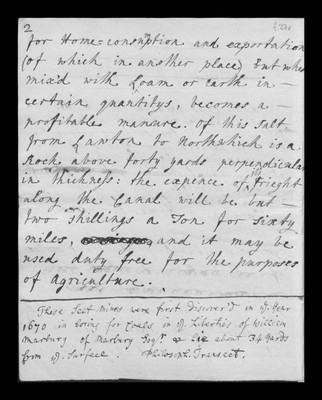 2
for Home=consũption and exportation
(of which in another place) But when
mix'd with Loam or earth in —
certain quantitys, becomes a —
profitable manure. of this Salt
from Lawton to Northwhich is a
Rock above forty yards perpendicular
in thickness: the expence of frieght
along the Canal will be but —
two shillings a Ton for Sixty
miles, and it may be
used duty free for the purposes
of agriculture.
These Salt mines were first discover'd in ye. Year
1670 in boring for Coals in ye. Liberties of William
Marbury of Marbury Esqr. & lie about 34 yards
from ye. Surface. Philosophl. Transact.